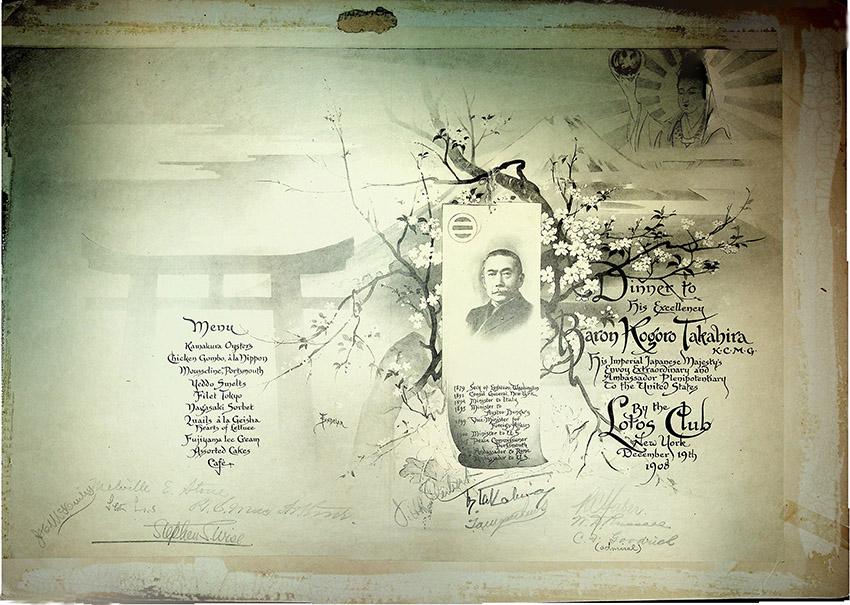 Menu
Kamakura Oysters
Chicken Gombo, à la Nippon
Mousseline, Portsmouth
Yeddo Smelts
Filet Tokyo
Nagasaki Sorbet
Quails à la Geisha
Hearts of Lettuce
Fujiyama Ice Cream
Assorted Cakes
Café
1879 Secy of Legation, Washington
1891 Consul General, New York
1894 Minister to Italy
1895 Minister to
Vice Minister for
Foreign Affairs
Minister to U.S.
Peace Commissioner
Portsmouth
Ambassador to Rome
Ambassador to U.S.
Dinner to
His Excellency
Baron Kogoro Takahira
K·C·M·G·
His Imperial Japanese Majesty's
Envoy Extraordinary and
Ambassador Plenipotentiary
To the United States
By the
Lotos Club
New York
December 19th
1908
Melville E. Stone
Stephen S. Wise
K. Takahira
C. F. Goodrich
(admiral)